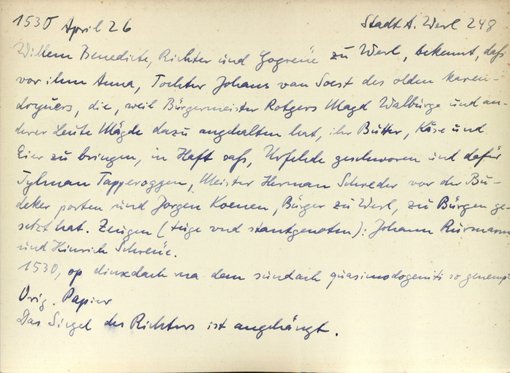 1530 April 26 Stadt A. Werl 248
Willem Benedicte, Richter und Gogreve zu Werl, bekennt, daß
vor ihm Anna, Tochter Johans van Soest des olden karen-
droguers, die, weil Bürgermeister Rotgers Magd Walburge und an-
derer Leute Mägde dazu angehalten hat, ihr Butter, Käse und
Eier zu bringen, in Haft saß, Urfehde geschworen und dafür
Tylman Tapperoggen, Meister Herman Schroder vor der Bu-
deker porten und Jorgen Koenen, Bürger zu Werl, zu Bürgen ge-
setzt hat. Zeugen (tuge und stantgenoten): Johann
und Hinrich
1530, op dinxdach na dem sundach quasimodogeniti so genempt
Orig. Papier
Das Siegel des Richters ist angehängt.